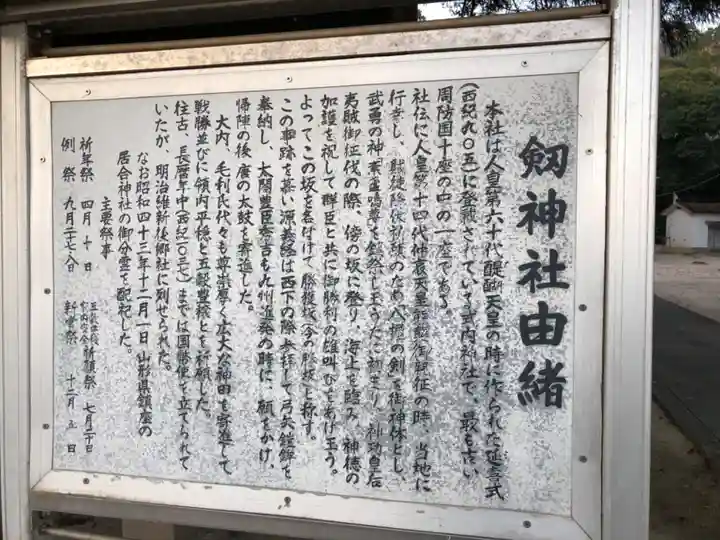 剱神社由緒
本社は人皇第六十代醍醐天皇の時に作られた延喜式
(西紀九〇五)に登載されている式内神社で、最も古い
周防国十座の中の一座である。
社伝に人皇第十四代仲哀天皇熊襲御親征の時、当地に
行幸し、賊徒降伏祈願のため八握の剣を御神体とし、
武勇の神素盞鳴尊を鎮祭し玉うたに初まり、神功皇后
夷賊御征伐の際、傍の坂に登り、海上を臨み、神徳の
加護を祝して群臣と共に御勝利の雄叫びをあげ玉う。
よってこの坂を名付けて勝複坂(今の勝坂)と称す。
この事跡を慕い源義経は西下の際、参拝して弓矢鎧鉾を
奉納し、太閤豊臣秀吉も九州進発の時に、願をかけ、
帰陣の後、慶の太鼓を寄進した。
大内、毛利氏代々も尊崇厚く広大な神田を寄進して
戦勝並びに領内平穏と五穀豊穣とを祈願した。
往古、長暦年中(西紀一〇三七)までは国幣使を立てられて
いたが、明治維新後郷社に列せられた。
なお昭和四十三年十二月一日山形県鎮座の
居合神社の御分霊を配祀した。
主要祭事
祈年祭 四月十日
祈願祭 七月二十日
例祭 九月二十七、八日
新嘗祭 十二月五日